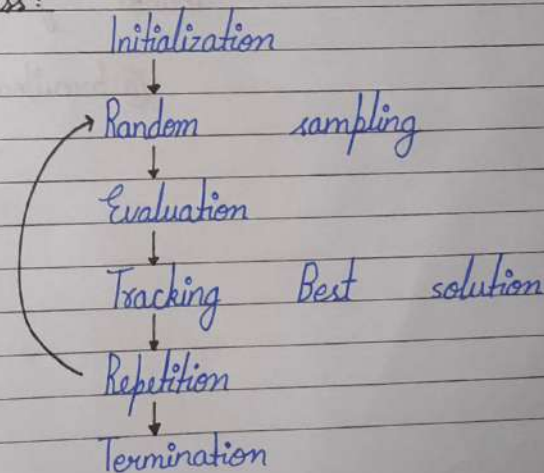 Initialization
Random sampling
Evaluation
Tracking Best solution
Repetition
Termination